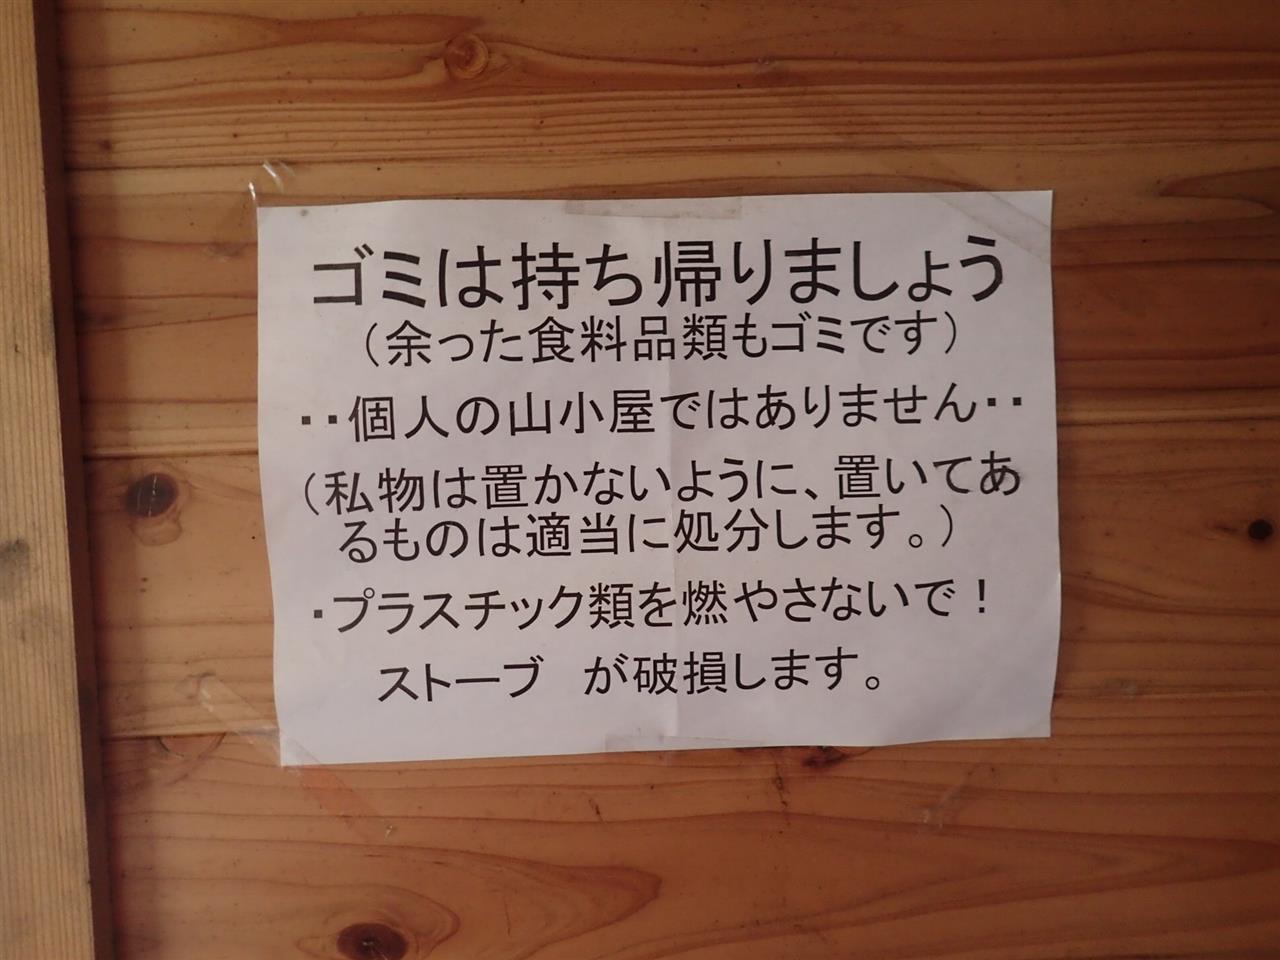 ゴミは持ち帰りましょう
（余った食料品類もゴミです）
・・個人の山小屋ではありません・・
（私物は置かないように、置いてあ
るものは適当に処分します。）
・プラスチック類を燃やさないで！
ストーブ　が破損します。